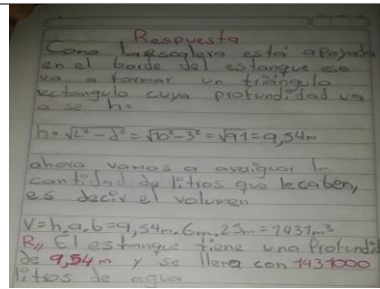 Respuesta
Como la escalera está apoyada
en el borde del estanque eso
va a formar un triángulo
rectangulo cuya profundidad va
a se h=
h=√L²-d²=√10²-3²=√91=9,54m
ahora vamos a averiguar l
cantidad de litros que le caben,
es decir el volumen
V=h.a.b=9,54m.6m.25m=1431m³
R// El estanque tiene una Profundi
de 9,54m y se llena con 1431000
litros de agua